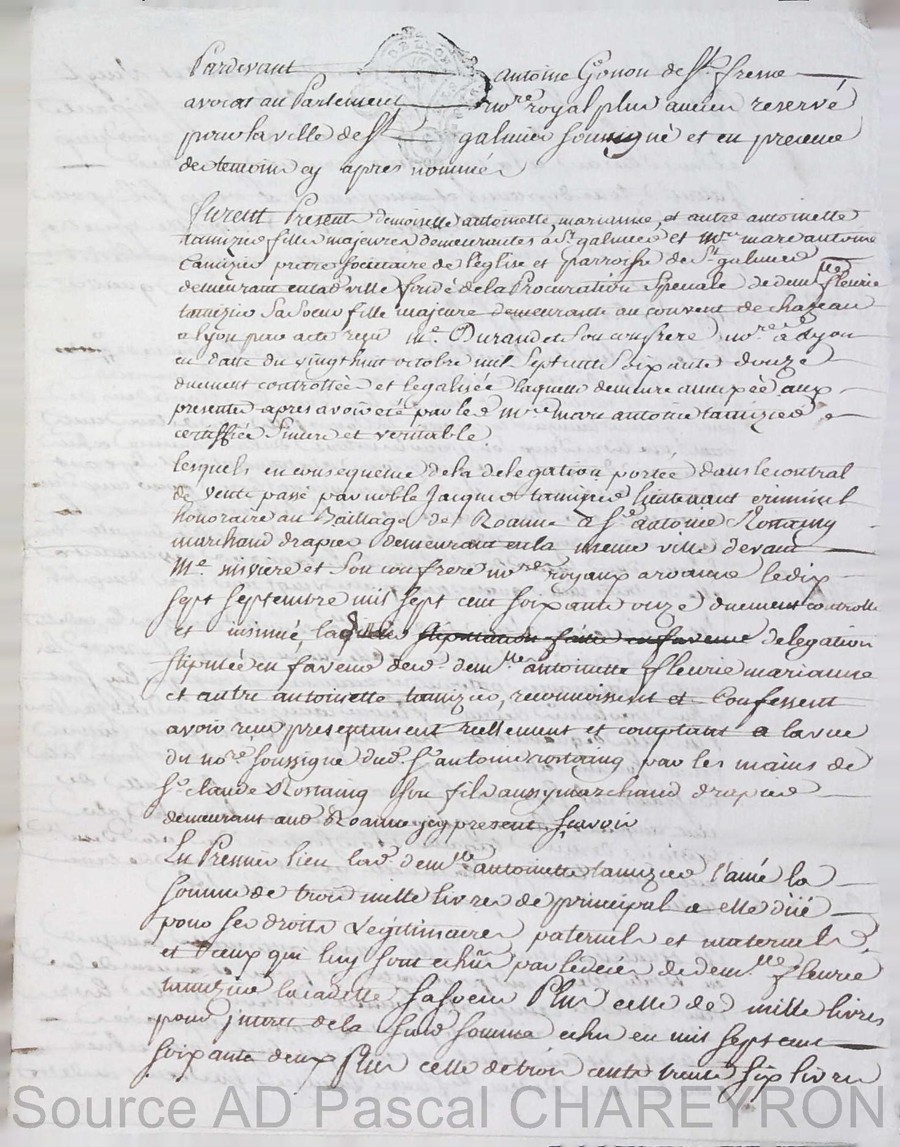 Pardevant antoine Gonon de St fresne
avocat au Parlement no.re royal plus ancien reservé
pour la ville de St galmier soussigné et en presence
des temoins cy apres nommés
furent Presents demoiselle antoinette, marianne, et autre antoinette
tamizier filles majeures demeurantes a St galmier et m.re marc antoine
tamizier pretre societaire de l'eglise et parroisse de St galmier
demeurant en lad ville fondé de la Procuration speciale de dem.lle fleurie
tamizier sa soeur fille majeure demeurante au couvent de chazeau
a lyon par acte reçu m.e Durand et son confrere no.res a Lyon
en datte du vingt huit octobre mil sept cent soixante douze
duement controllée et legalisée laquelle demeure annexée aux
presentes apres avoir été par led m.re marc antoine tamizier
certiffiée sincere et veritable
lesquels en consequence de la delegation portée dans le contrat
de vente passé par noble Jacques tamizier lieutenant criminel
honoraire au Bailliage de Roanne a S.r antoine Rostaing
marchand drapier demeurant en la meme ville devant
M.e miviere et son confrere no.res royaux a roanne le dix
sept septembre mil sept cent soixante onze duement controllé
et insinué lad. stipulation faitte en faveur delegation
stipulée en faveur desd. dem.lles antoinette fleurie marianne
et autre antoinette tamizier, reconnoissent et Confessent
avoir reçu presentement reellement et comptant a la vue
du no.re soussigné dud. S.r antoine rostaing par les mains de
S.r claude Rostaing son fils aussy marchand drapier
demeurant aud Roanne icy present, savoir
En Premier lieu lad. dem.lle antoinette tamizier l'ainé la
somme de trois mille livres de principal a elle düe
pour ses droits Legitimaires paternels et maternels,
et Ceux qui luy sont echus par le deces de dem.lle fleurie
tamizier la cadette sa soeur Plus celle de mille livres
pour jnteret de la susd somme echu en mil sept cent
soixante deux Plus celle de trois cents trente six livres
Source AD Pascal CHAREYRON